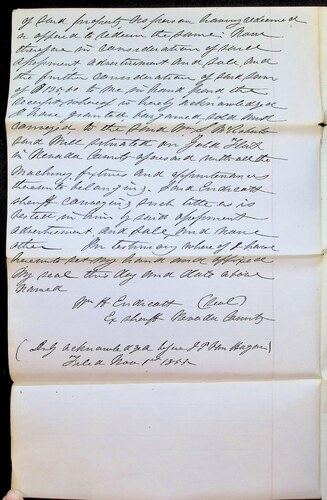 of said property No person having redeemed
or offered to redeem the same: Now
therefore in consideration of said
appment advertisement and sale and
the further consideration of said sum
of $135.60 to me in hand paid the
receipt whereof is hereby acknowledged
I have granted bargained sold and
conveyed to the said Wm
said Mill situated on Gold Flat
in Nevada County aforesaid with all the
machinery fixtures and appurtenances
thereunto belonging: Said Endicott
sheriff conveying such title as is
vested in him by said appment
advertisement and sale and none
other In testimony where of I have
hereunto set my hand and affixed
My seal this day and date above
named
Wm H Endicott (Seal)
Ex sheriff Nevada County
(Duly acknowledged before J P Van Hagan)
Filed Nov 1st